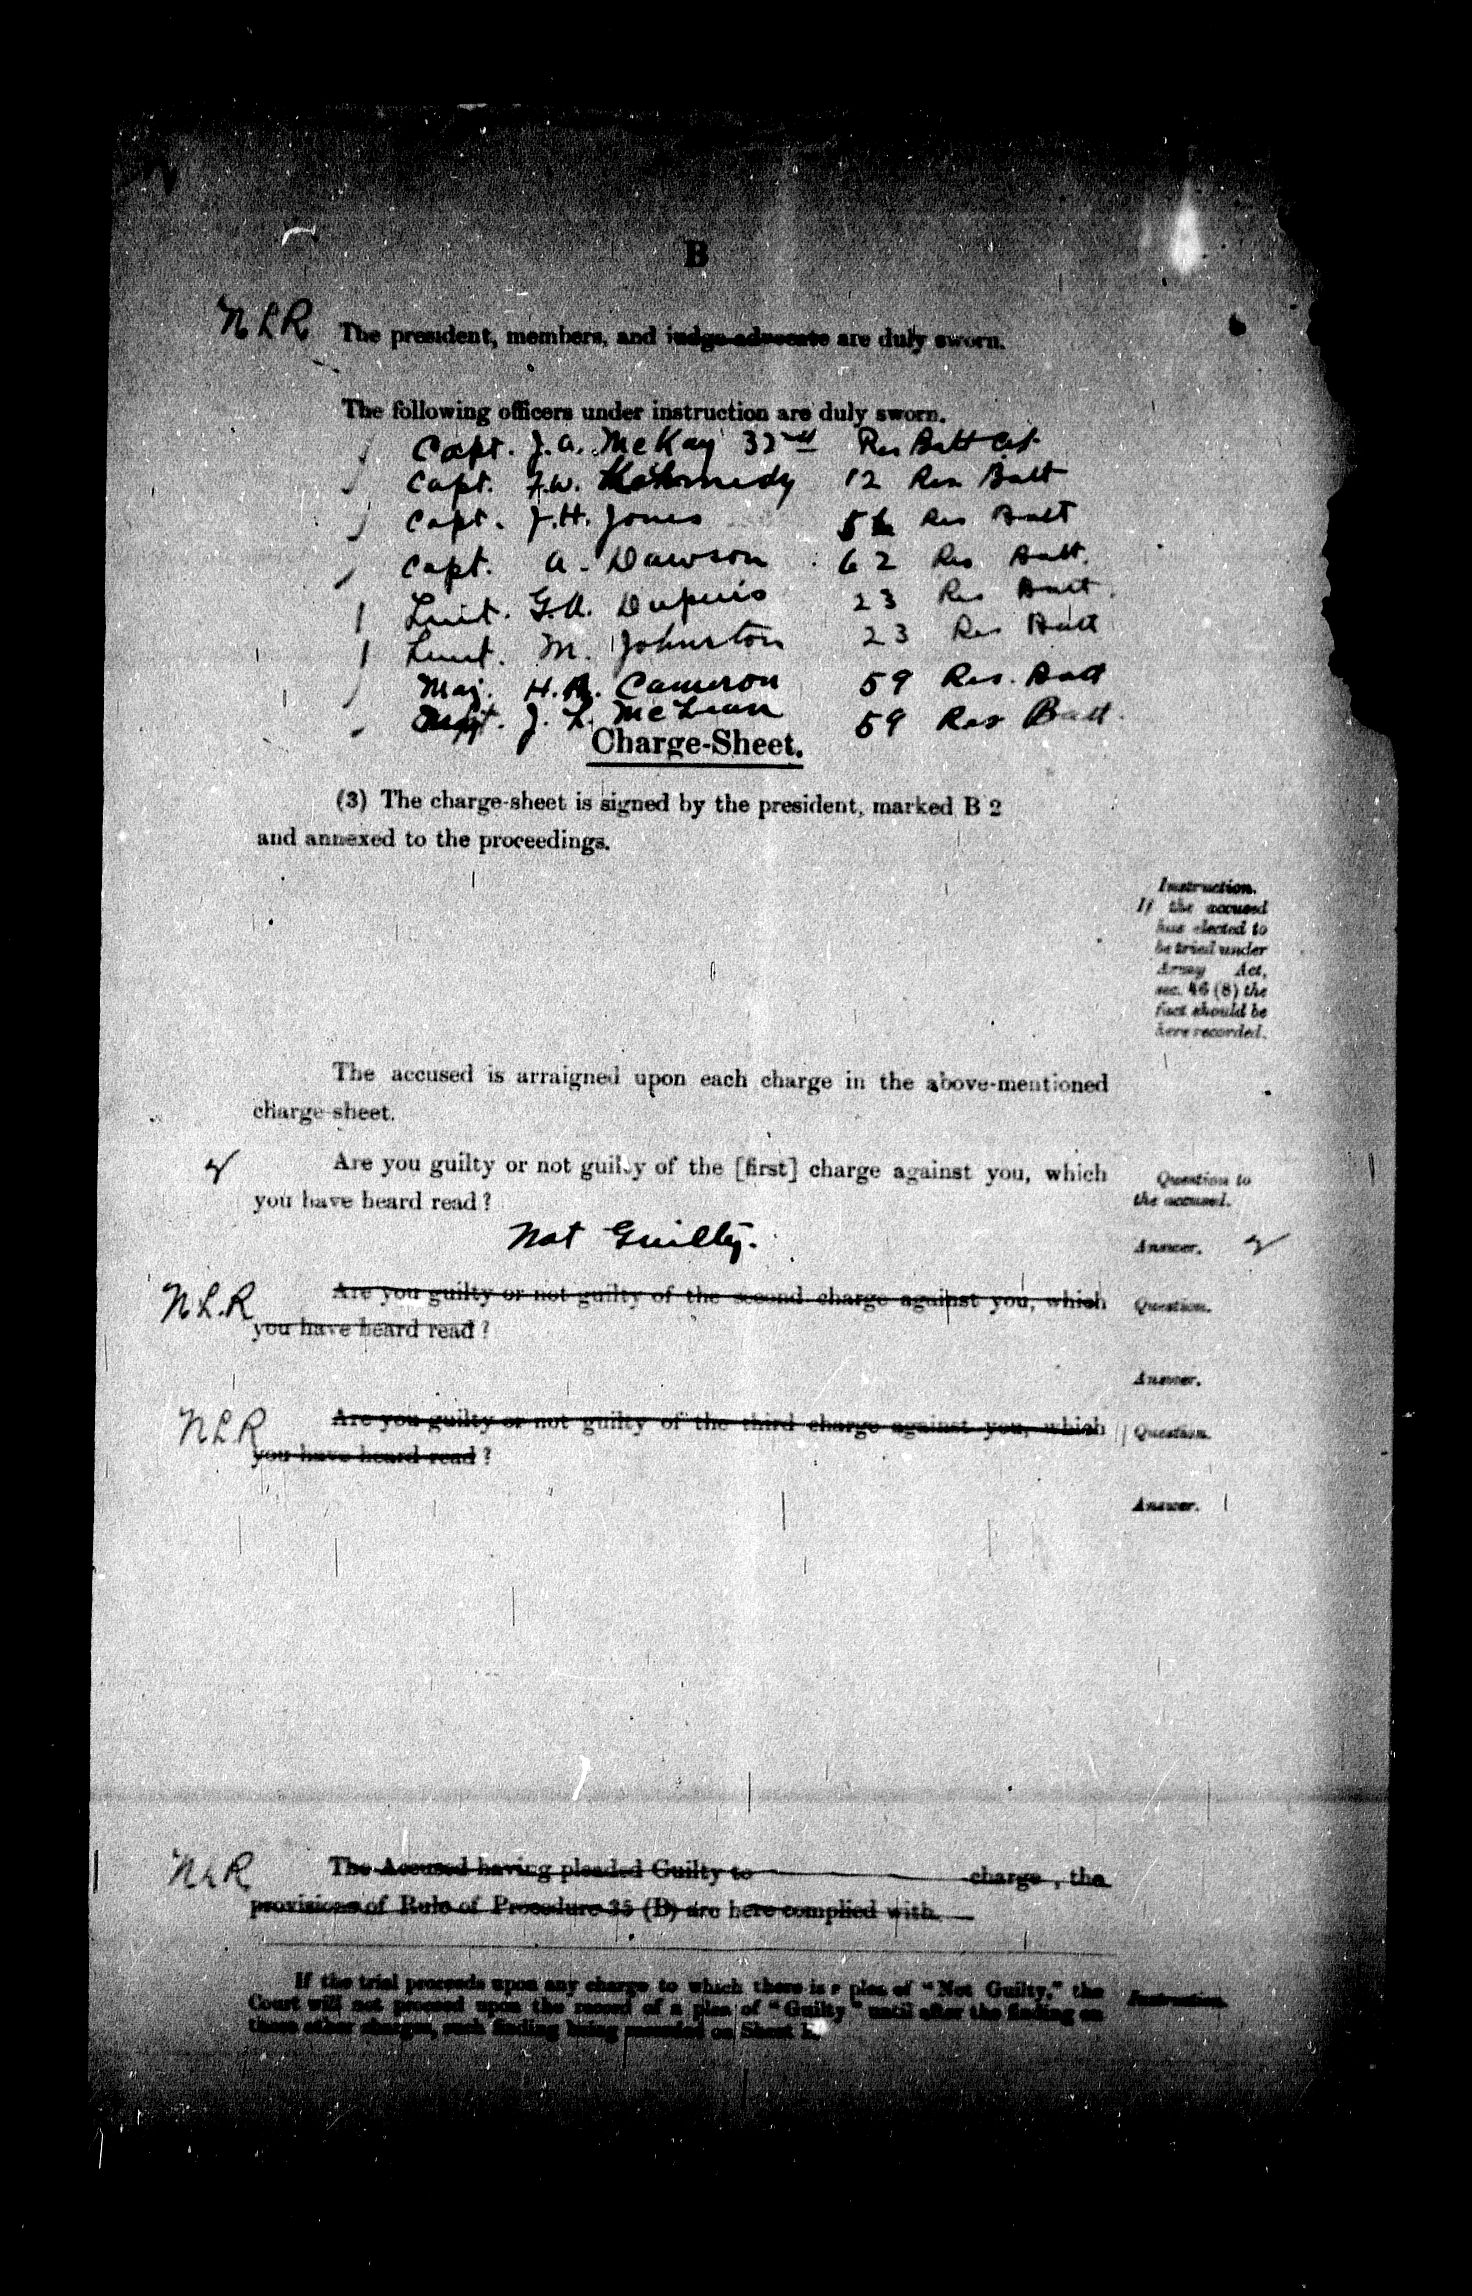 B
N L R The president, members, and judge-advocate are duly sworn.
The following officers under instruction are duly sworn.
Capt. J. A. McKay 32nd Res Batt
Capt. F. W. 12 Res Batt
Capt. J. H. Jones Res Batt
Capt. A. Dawson 62 Res Batt.
Lieut. G. A. Dupuis 23 Res Batt.
Lieut. M. Johnston 23 Res Batt
Maj. H. Cameron 59 Res. Batt
J. L. McLean 59 Res Batt.
Charge-Sheet.
(3) The charge-sheet is signed by the president, marked B 2
and annexed to the proceedings.
Instruction.
If the accused
has elected to
be tried under
Army Act,
sec. 46 (8) the
fact should be
here recorded.
The accused is arraigned upon each charge in the above-mentioned
charge-sheet.
Are you guilty or not guilty of the [first] charge against you, which
you have heard read?
Question to
the accused.
Not Guilty.
Answer.
N. L. R Are you guilty or not guilty of the second charge against you, which
you have heard read?
Question.
Answer.
N L R Are you guilty or not guilty of the third charge against you, which
you have heard read?
Question.
Answer.
N L R The Accused having pleaded Guilty to charge , the
provisions of Rule of Procedure 35 (B) are here complied with.
If the trial proceeds upon any charge to which there is a plea of "Not Guilty," the
Court will not proceed upon the record of a plea of "Guilty" until after the finding on
those other charges, such finding being recorded on Sheet
Instruction.